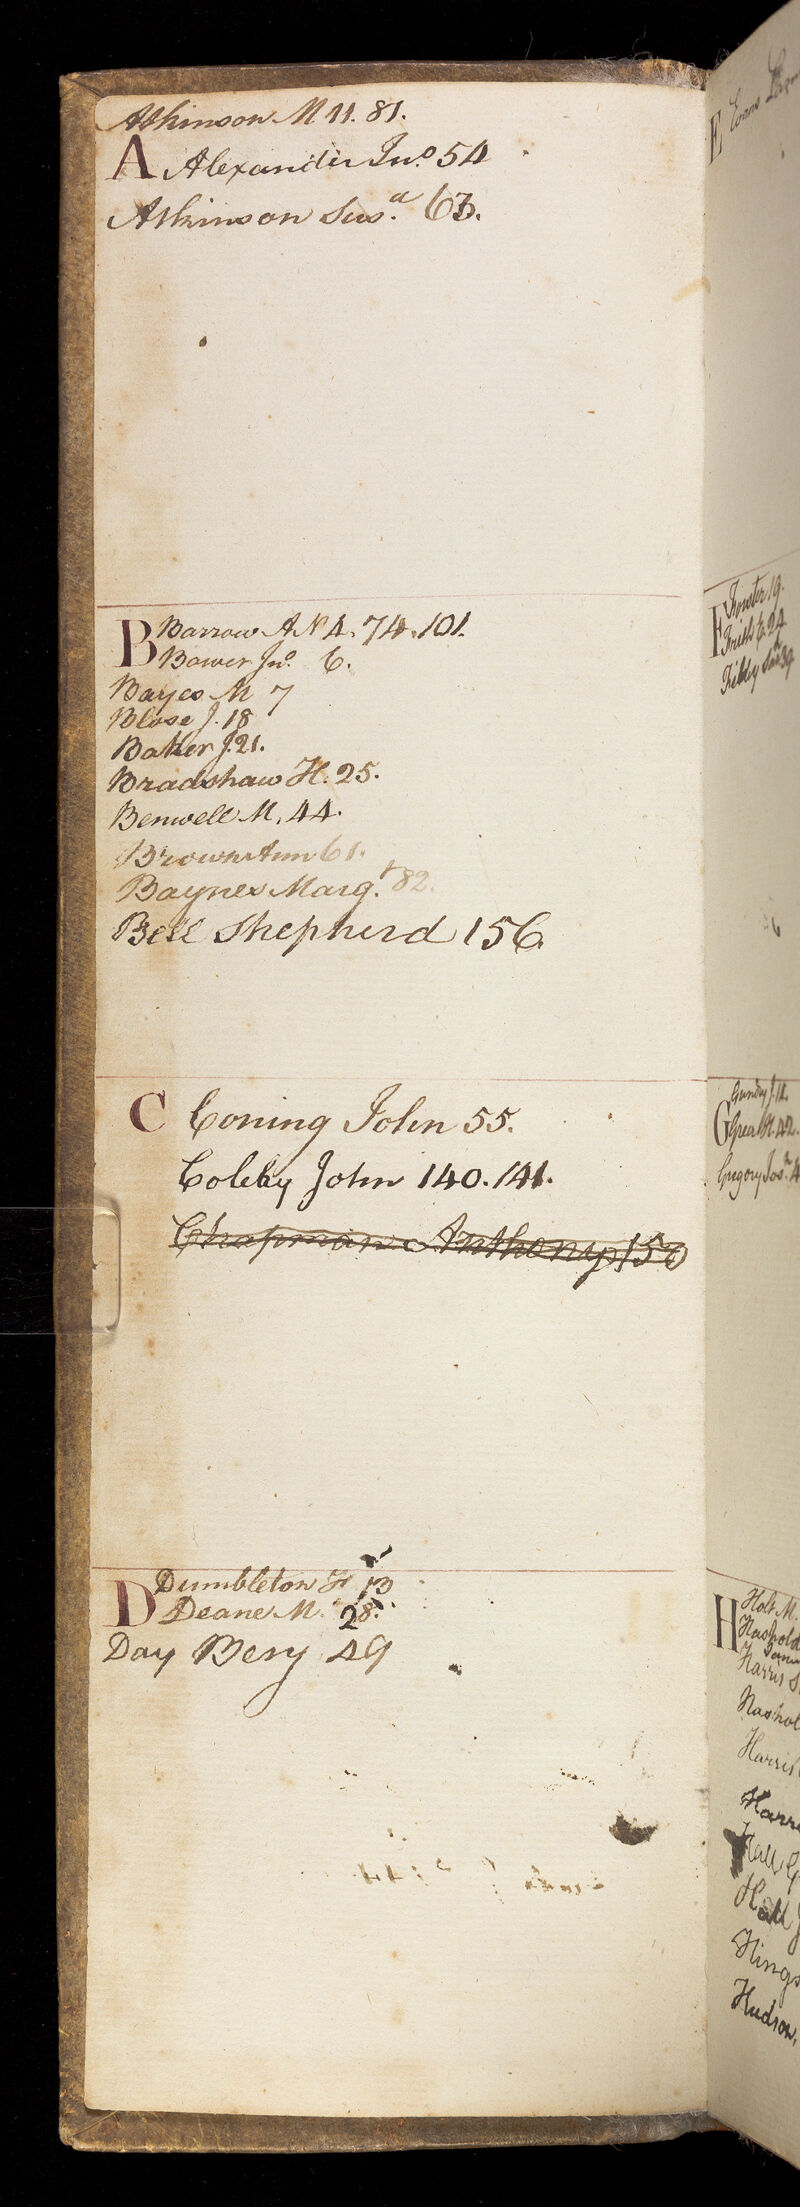 Atkinson M 11. 81.
A Alexander Jno. 54
Atkinson Susa. 63.
B Barrow A N 4. 74. 101.
Bower Jno. 6.
Bayes M 7
Blose J. 18
Baker J. 21.
Bradshaw H. 25.
Benwell M. 44.
Brown Ann 61.
Baynes Margt. 82.
Bell Shepherd 156.
C Coning John 55.
Coleby John 140. 141.
Chapman Anthony 150
D Dumbleton H 13
Deane M. 28.
Day Beny 49
E Evans
F
Frith 24
Filby
G Gundry J. 14.
42.
Gregory Jos. 4
H Holt M.
Harris S
Harris
Hall G
Hall J
Hings
Hudson,